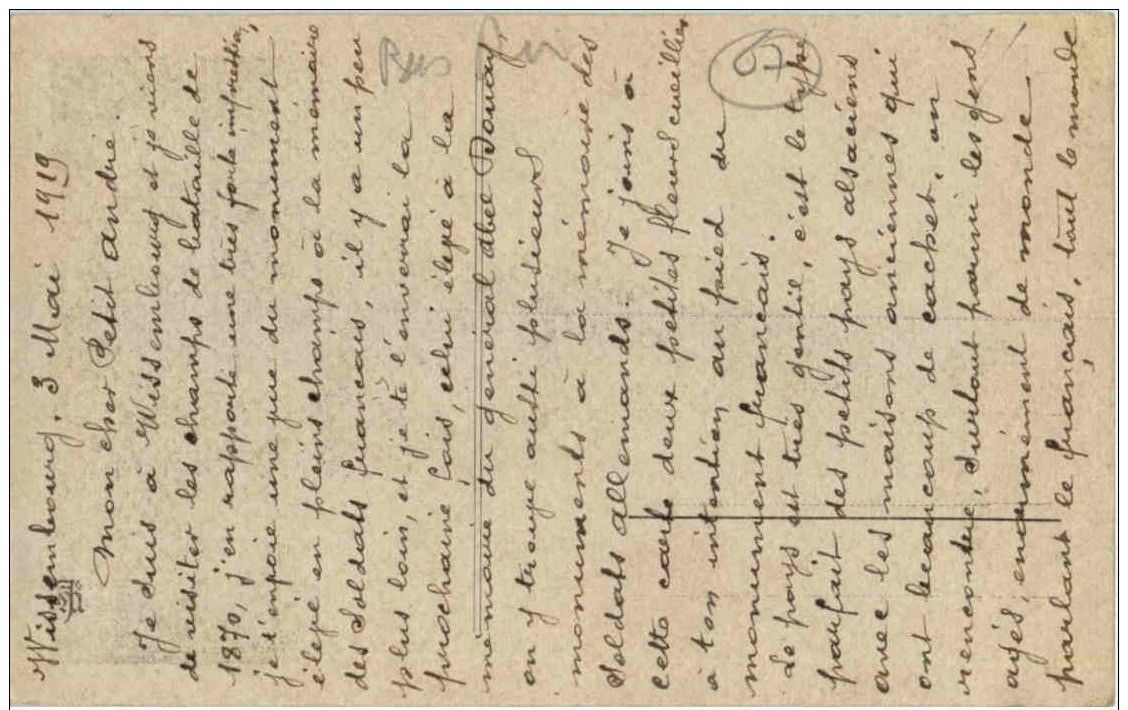 Wissembourg, 3 Mai 1919
Mon cher Petit André.
Je suis à Wissembourg et je viens
de visiter les champs de bataille de
1870, j'en rapporte une très forte impression,
je t'envoie une vue du monument
élevé en pleins champs à la mémoire
des Soldats français, il y a un peu
plus loin, et je te l'enverrai la
prochaine fois, celui élevé à la
mémoire du général Abel Douay,
on y trouve aussi plusieurs
monuments à la mémoire des
Soldats allemands. Je joins à
cette carte deux petites fleurs cueillies
à ton intention au pied du
monument français.
Le pays est très gentil, c'est le type
parfait des petits pays alsaciens
avec les maisons anciennes qui
ont beaucoup de cachet, on
rencontre, surtout parmi les gens
agés, enormément de monde
parlant le français, tout le monde